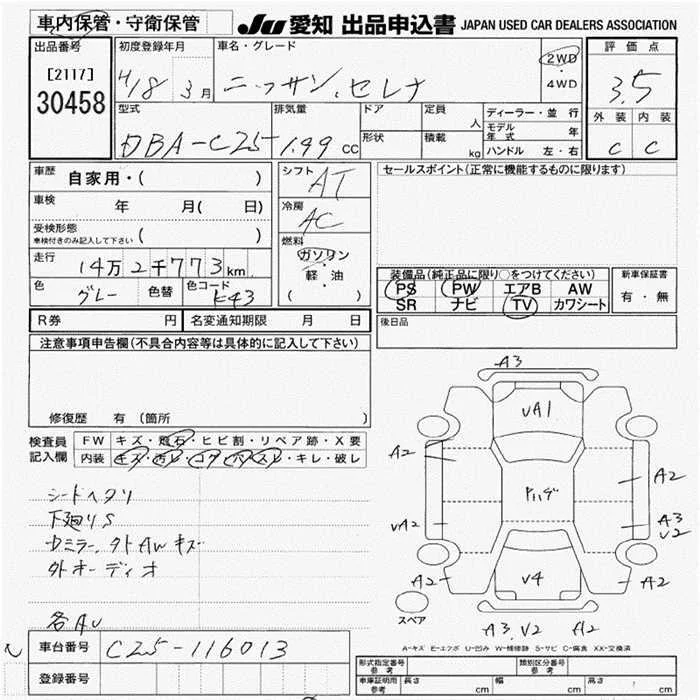 車内保管・守衛保管 JU 愛知 出品申込書 JAPAN USED CAR DEALERS ASSOCIATION
出品番号 初度登録年月 車名・グレード 2WD・4WD 評価点
[2117] H18 3月 ニッサン、セレナ 3.5
30458
型式 排気量 ドア 定員 人 ディーラー・並行 外装 内装
DBA-C25 1.99 CC 形状 積載 kg モデル年式 年
ハンドル 左・右 C C
車歴 自家用・( )
シフト AT
セールスポイント(正常に機能するものに限ります)
車検 年 月( 日)
冷房 AC
受検形態 ( )
車検付きのみ記入して下さい
燃料 ガソリン・軽油 ( )
走行 14万2千773km
装備品(純正品に限り○をつけてください) 新車保証書
色 グレー 色替 色コード K43
PS PW エアB AW 有・無
SR ナビ TV カワシート
R券 円 名変通知期限 月 日
後日品
注意事項申告欄(不具合内容等は具体的に記入して下さい)
修復歴 有(箇所 )
検査員記入欄
FW キズ・飛石・ヒビ割・リペア跡・X要
内装 キズ・汚レ・コゲ・穴・スレ・キレ・破レ
シートヘタリ
下廻りS
カミラー、タトAWキズ
外オーディオ
各AU
A3
VA1
A2
A2
ﾔﾊﾃﾞ
VA2
A3
V2
A2
V4
A2
スペア
A3 V2 A2
A-キズ E-エクボ U-凹み W-補修跡 S-サビ C-腐食 XX-交換済
車台番号 C25-116013
登録番号
形式指定番号 参考 類別区分番号 参考
車庫証明用 参考 長さ cm 幅 cm 高さ cm